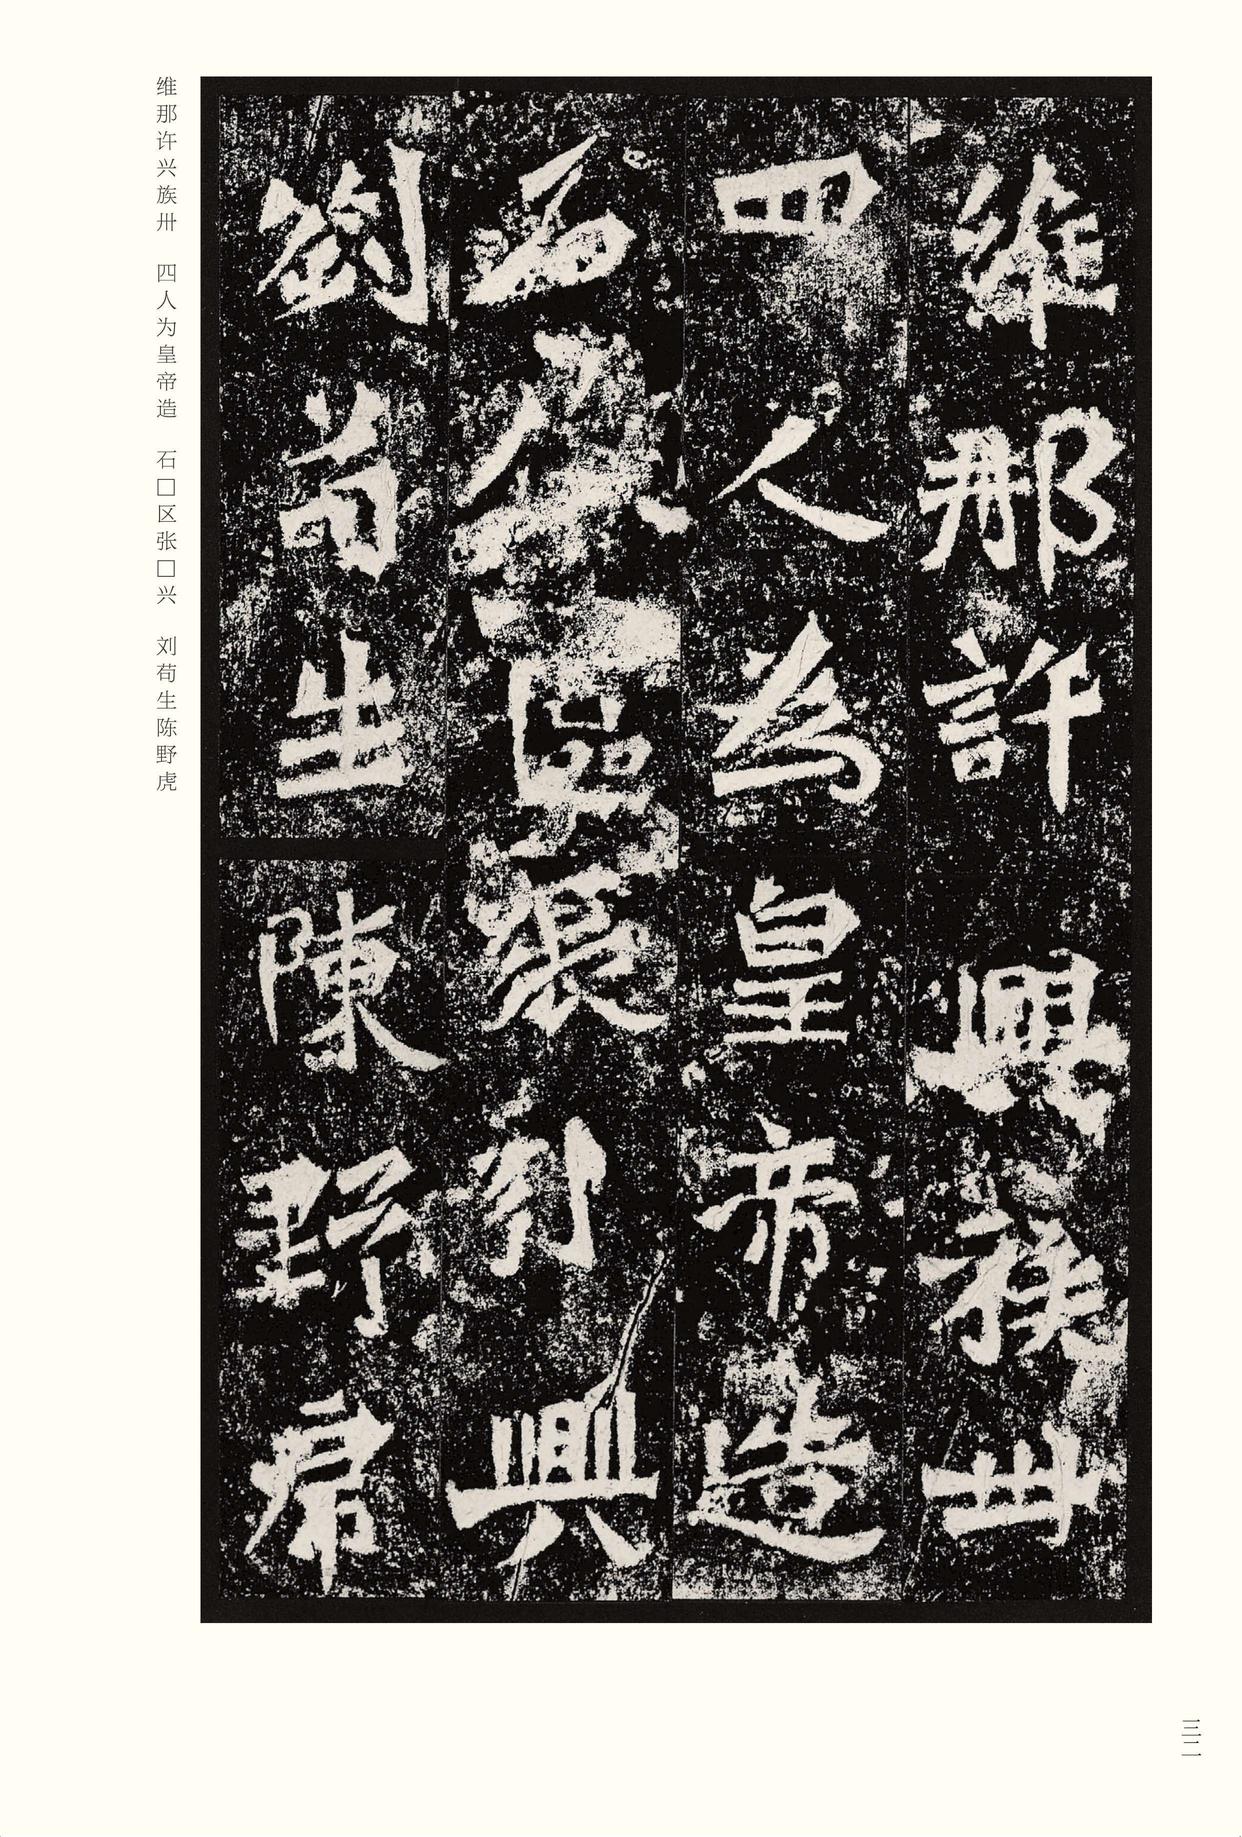 維那許興族卅
四人為皇帝造
石區張引興
劉苟生陳野虎
维那许兴族卅　四人为皇帝造　石□区张□兴　刘苟生陈野虎
三二